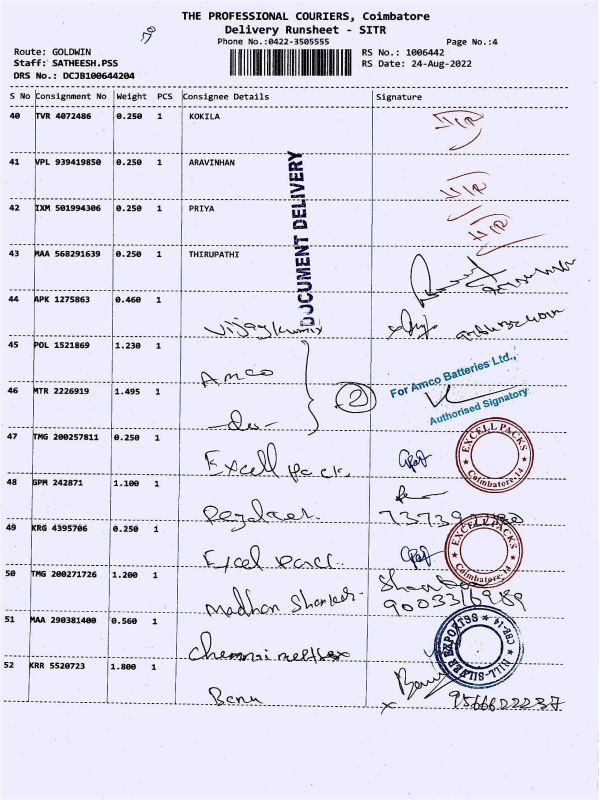 THE PROFESSIONAL COURIERS, Coimbatore
Delivery Runsheet - SITR
Phone No.:0422-3505555 Page No.:4
Route: GOLDWIN RS No.: 1006442
Staff: SATHEESH.PSS RS Date: 24-Aug-2022
DRS No.: DCJB100644204
S No Consignment No Weight PCS Consignee Details Signature
40 TVR 4072486 0.250 1 KOKILA
41 VPL 939419850 0.250 1 ARAVINHAN
42 IXM 501994306 0.250 1 PRIYA
43 MAA 568291639 0.250 1 THIRUPATHI
DOCUMENT DELIVERY
44 APK 1275863 0.460 1
Vijaykumar
45 POL 1521869 1.230 1
Amco
For Amco Batteries Ltd.,
Authorised Signatory
46 MTR 2226919 1.495 1
2
-do-
47 TMG 200257811 0.250 1
Excell pack
EXCELL PACKS
Coimbatore-14
48 GPM 242871 1.100 1
49 KRG 4395706 0.250 1
Excel pack
EXCELL PACKS
Coimbatore-14
50 TMG 200271726 1.200 1
Madhan
51 MAA 290381400 0.560 1
Chennai
CBE-14
52 KRR 5520723 1.800 1
Banu
9566622237